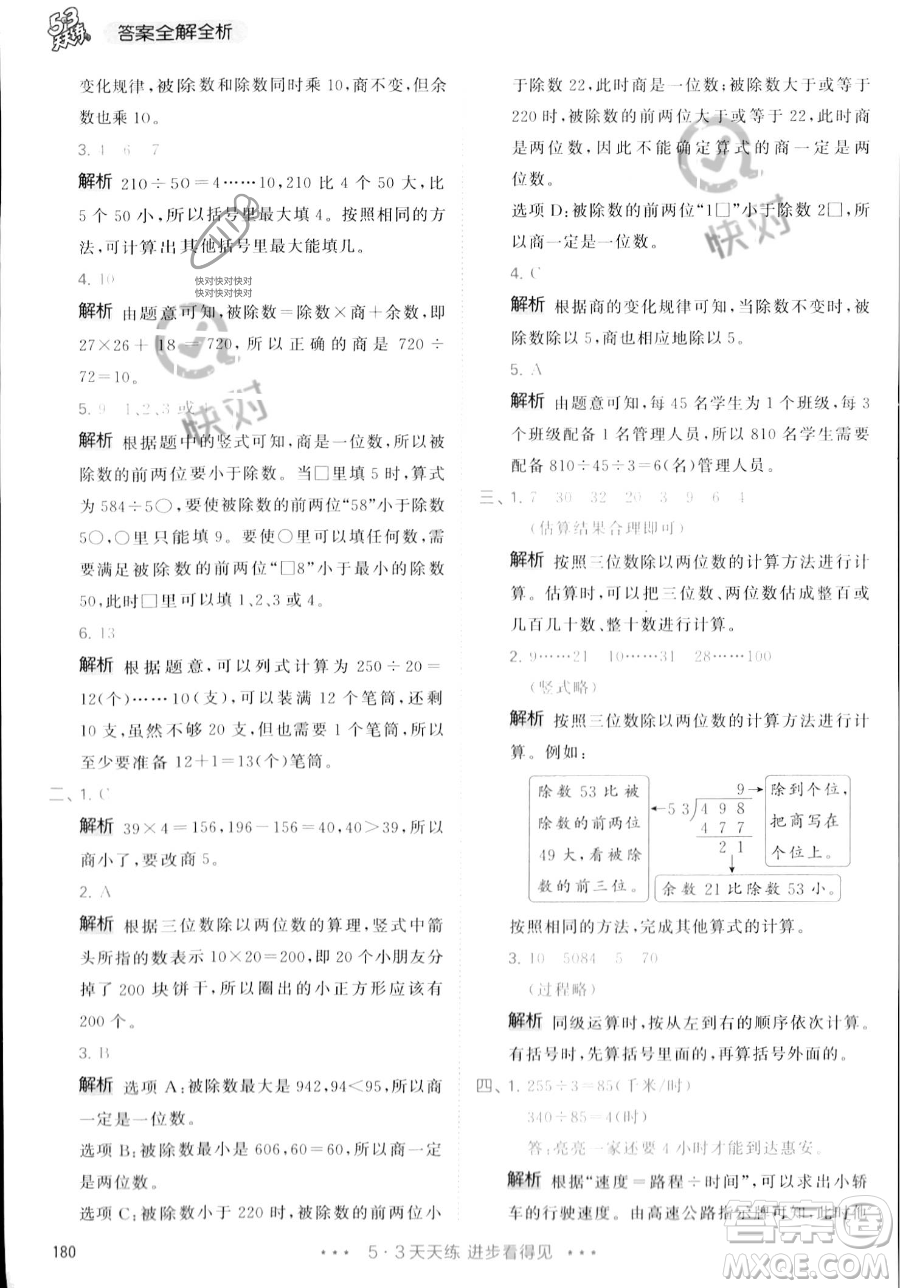 53
天天练
答案全解全析
变化规律，被除数和除数同时乘 10，商不变，但余
数也乘 10。
3. 4 6 7
解析 210÷50=4……10，210 比 4 个 50 大，比
5 个 50 小，所以括号里最大填 4。按照相同的方
法，可计算出其他括号里最大能填几。
4. 10
解析 由题意可知，被除数=除数×商+余数，即
27×26+18=720，所以正确的商是 720÷
72=10。
5. 9 1、2、3 或
解析 根据题中的竖式可知，商是一位数，所以被
除数的前两位要小于除数。当□里填 5 时，算式
为 584÷5○，要使被除数的前两位“58”小于除数
5○，○里只能填 9。要使○里可以填任何数，需
要满足被除数的前两位“□8”小于最小的除数
50，此时□里可以填 1、2、3 或 4。
6. 13
解析 根据题意，可以列式计算为 250÷20=
12(个)……10(支)，可以装满 12 个笔筒，还剩
10 支，虽然不够 20 支，但也需要 1 个笔筒，所以
至少要准备 12+1=13(个)笔筒。
二、1. C
解析 39×4=156，196-156=40，40>39，所以
商小了，要改商 5。
2. A
解析 根据三位数除以两位数的算理，竖式中箭
头所指的数表示 10×20=200，即 20 个小朋友分
掉了 200 块饼干，所以圈出的小正方形应该有
200 个。
3. B
解析 选项 A：被除数最大是 942，94<95，所以商
一定是一位数。
选项 B：被除数最小是 606，60=60，所以商一定
是两位数。
选项 C：被除数小于 220 时，被除数的前两位小
于除数 22，此时商是一位数；被除数大于或等于
220 时，被除数的前两位大于或等于 22，此时商
是两位数。因此不能确定算式的商一定是两
位数。
选项 D：被除数的前两位“1□”小于除数 2□，所
以商一定是一位数。
4. C
解析 根据商的变化规律可知，当除数不变时，被
除数除以 5，商也相应地除以 5。
5. A
解析 由题意可知，每 45 名学生为 1 个班级，每 3
个班级配备 1 名管理人员，所以 810 名学生需要
配备 810÷45÷3=6(名)管理人员。
三、1. 7 30 32 20 3 9 6 4
(估算结果合理即可)
解析 按照三位数除以两位数的计算方法进行计
算。估算时，可以把三位数、两位数估成整百或
几百几十数、整十数进行计算。
2. 9……21 10……31 28……100
(竖式略)
解析 按照三位数除以两位数的计算方法进行计
算。例如：
除数 53 比被
除数的前两位
49 大，看被除
数的前三位。
9
53)498
477
21
除到个位，
把商写在
个位上。
余数 21 比除数 53 小。
按照相同的方法，完成其他算式的计算。
3. 10 5084 5 70
(过程略)
解析 同级运算时，按从左到右的顺序依次计算。
有括号时，先算括号里面的，再算括号外面的。
四、1. 255÷3=85(千米/时)
340÷85=4(时)
答：亮亮一家还要 4 小时才能到达惠安。
解析 根据“速度=路程÷时间”，可以求出小轿
车的行驶速度。由高速公路指示牌可知，此地
180
5·3 天天练 进步看得见
快对
快对
快对快对快对
快对快对快对
答案圈